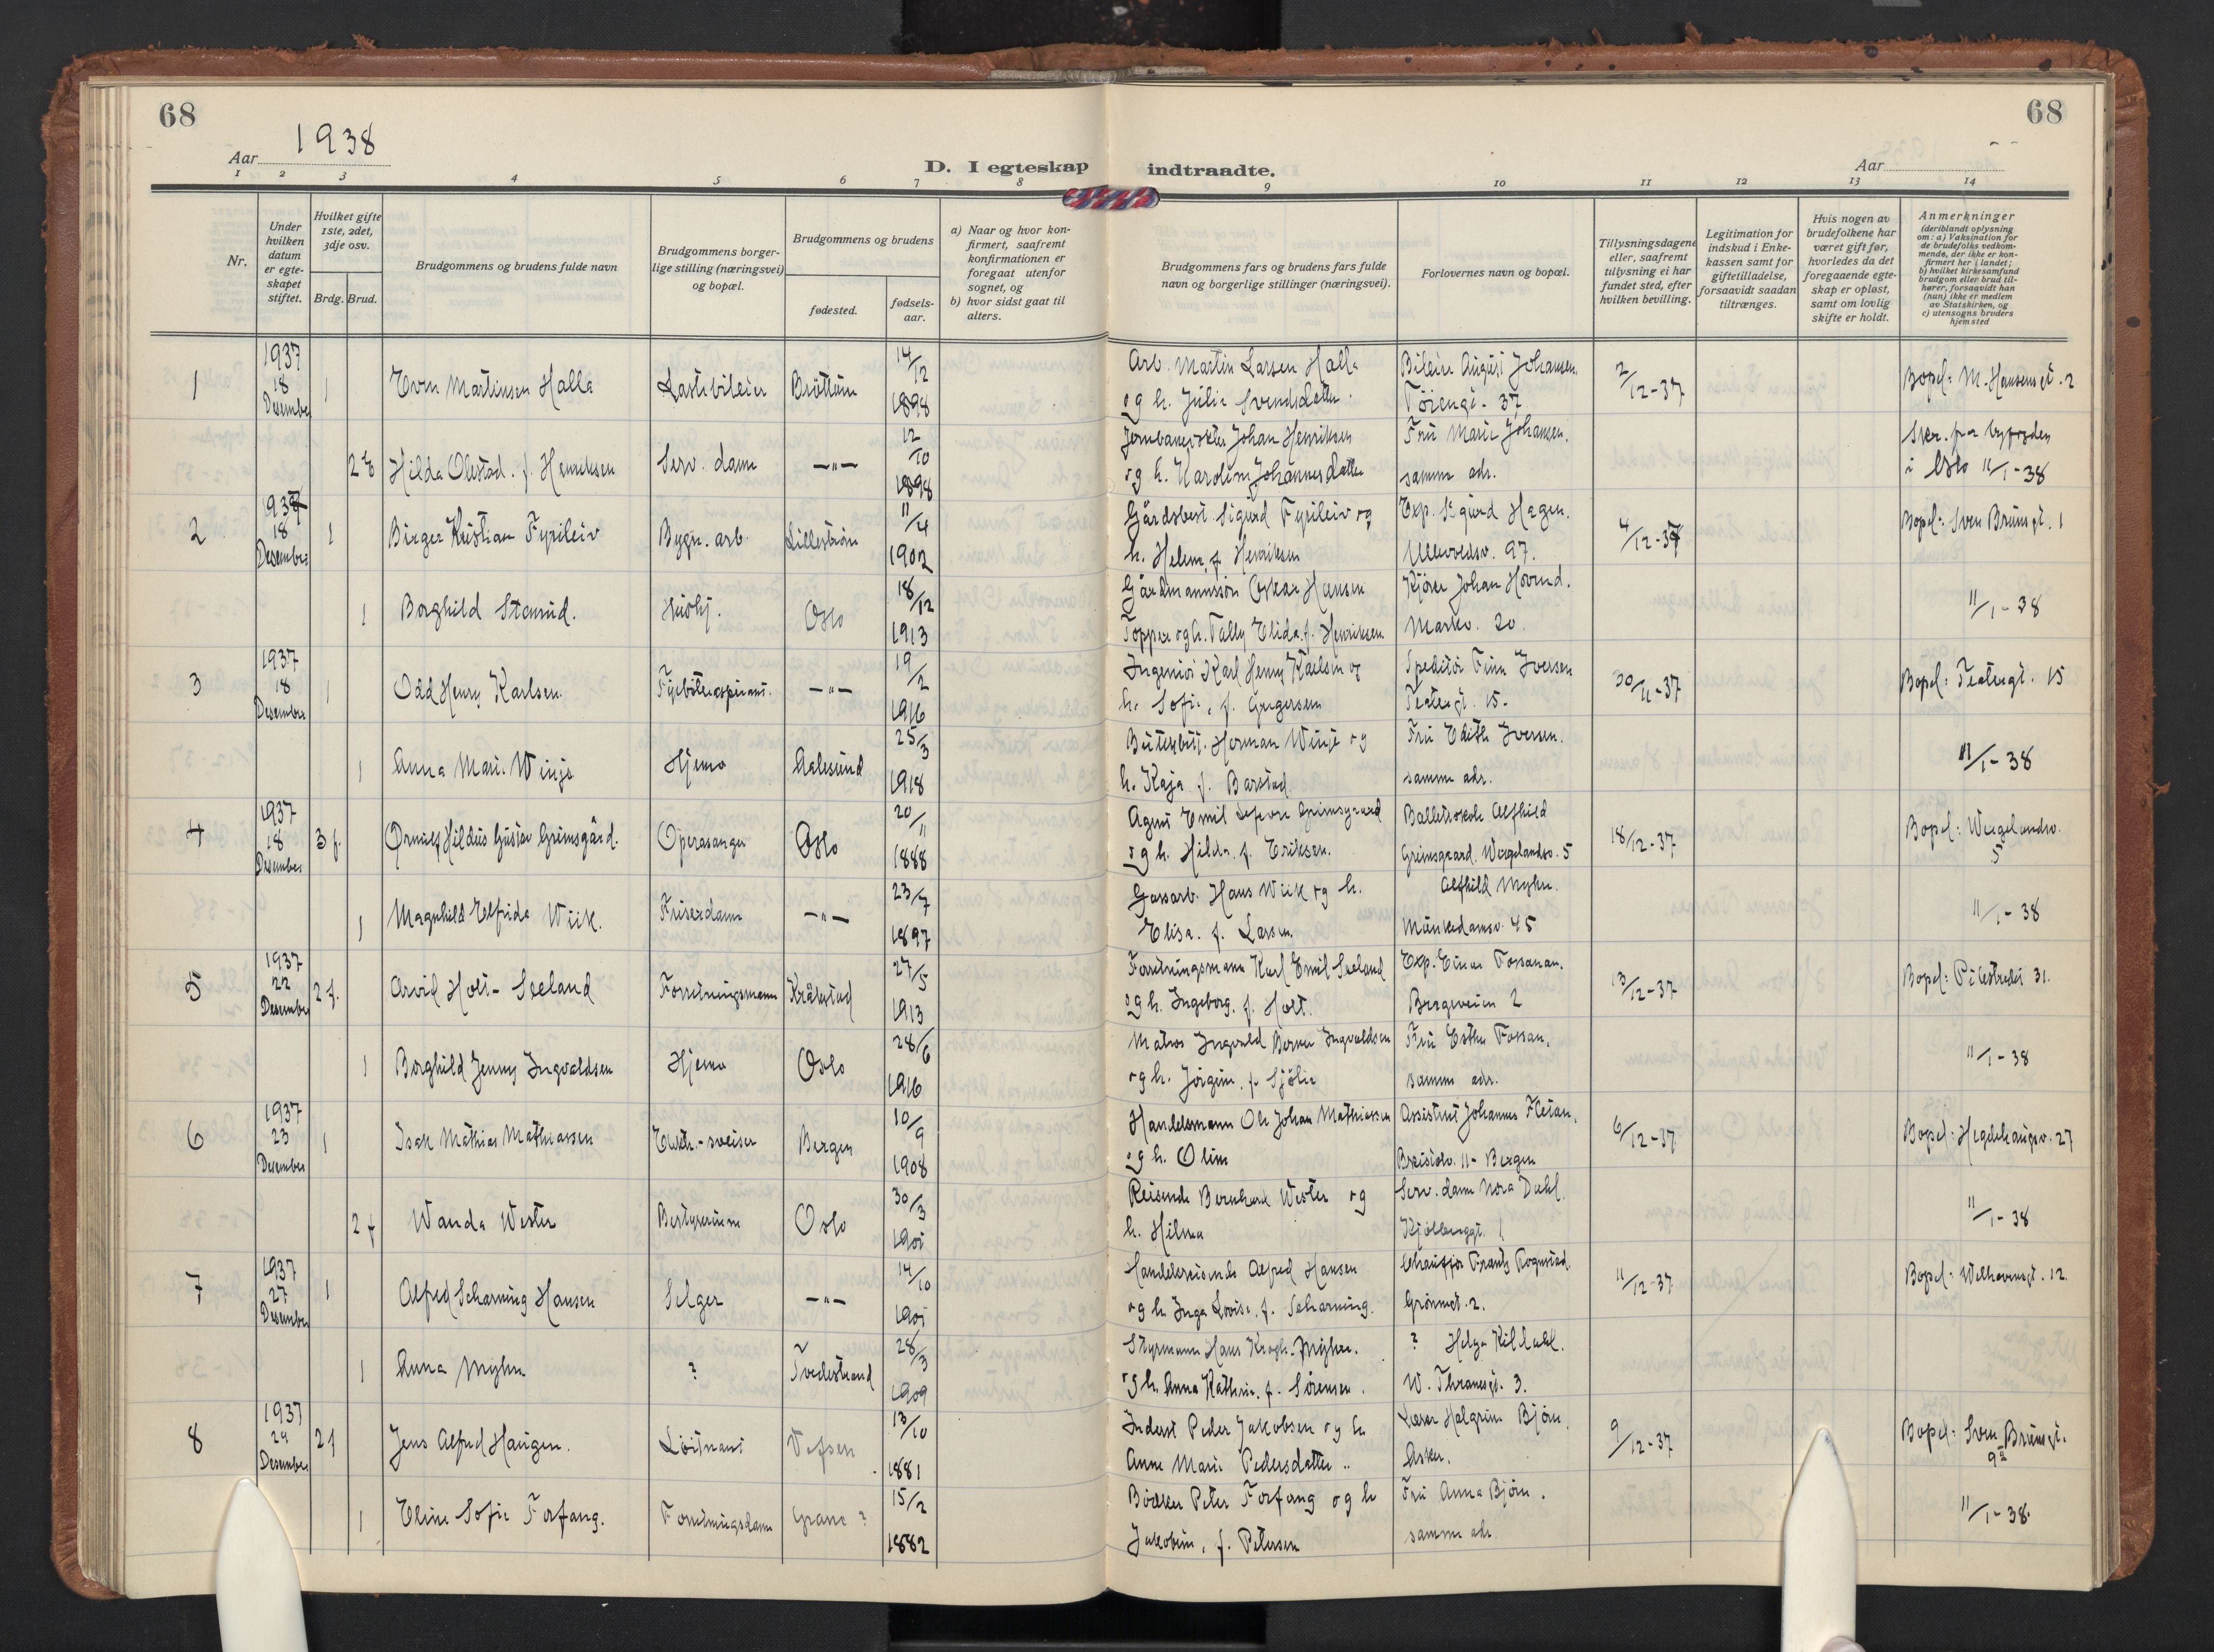 68
68
Aar 1938
D. I egteskap indtraadte.
Aar
1 2 3 4 5 6 7 8 9 10 11 12 13 14
Nr.
Under hvilken datum er egteskapet stiftet.
Hvilket gifte 1ste, 2det, 3dje osv.
Brdg. Brud.
Brudgommens og brudens fulde navn
Brudgommens borgerlige stilling (næringsvei) og bopæl.
Brudgommens og brudens
fødested.
fødselsaar.
a) Naar og hvor konfirmert, saafremt konfirmationen er foregaat utenfor sognet, og
b) hvor sidst gaat til alters.
Brudgommens fars og brudens fars fulde navn og borgerlige stillinger (næringsvei).
Forlovernes navn og bopæl.
Tillysningsdagene eller, saafremt tillysning ei har fundet sted, efter hvilken bevilling.
Legitimation for indskud i Enkekassen samt for giftetilladelse, forsaavidt saadan tiltrænges.
Hvis nogen av brudefolkene har været gift før, hvorledes da det foregaaende egteskap er opløst, samt om lovlig skifte er holdt.
Anmerkninger (deriblandt oplysning om: a) Vaksination for de brudefolks vedkommende, der ikke er konfirmert her i landet; b) hvilket kirkesamfund brudgom eller brud tilhører, forsaavidt han (hun) ikke er medlem av Statskirken, og c) utensogns bruders hjemsted
1 1937 18 Desember 1 Even Martinsen Halla Lastebileier Brøttum 14/12 1898 Arb. Martin Larsen Halla og h. Julie Svendsdatter. Bileier August Johansen. 37 2/12-37 Bopel: M. Hansens gt. 2
2 E Hilda Olestad. f. Henriksen Serv. dame —"— 12/10 1898 Johan Henriksen og h. Karoline Johannesdatter Frü Marie Johansen. samme adr. i Oslo 11/1-38
2 1937 18 Desember 1 Birger Kristian Fyrileiv Bygn. arb. Lillestrøm 11/4 1902 Gårdsbest. Sigurd Fyrileiv og h. Helene, f. Henriksen Exp. Sigurd Hagen. Ullevoldsv. 97. 4/12-37 Bopel: Sven Brunsgt. 1
1 Borghild Stensrud. Hüshj. Oslo 18/12 1913 Oskar Hansen Topper og h. Tally Elida. f. Henriksen Kjører Johan Hovind. Markv. 20. 11/1-38
3 1937 18 Desember 1 Odd Henry Karlsen. Fyrbøteraspirant. —"— 19/2 1916 Ingeniør Karl Henry Karlsen og h. Sofie, f. Gregersen Speditør Finn Iversen Teatergt. 15. 30/11-37 Bopel: Teatergt. 15
1 Anna Marie Winje Hjemv Aalesund 25/3 1918 Herman Winje og h. Kaja f. Barstad Frü Edith Iversen. samme adr. 11/1-38
4 1937 18 Desember 3 f. Ørnulf Hildus Gustav Grimsgård. Operasanger Oslo 20/11 1888 Agent Emil Lefevre Grimsgaard og h. Hilda. f. Eriksen. Alfhild Grimsgaard. Wergelandsv. 5 18/12-37 Bopel: Wergelandsv. 5
1 Magnhild Elfrida Wiik. Friserdame —"— 23/7 1897 Gassarb. Hans Wiik og h. Elisa. f. Larsen Alfhild Myhre. Münkedamsv. 45 11/1-38
5 1937 22 Desember 2 f. Arvid Holt-Seeland Forretningsmann Kråkstad 27/5 1913 Forretningsmann Karl Emil Seeland og h. Ingeborg. f. Holt. Exp. Einar Fossan. Brageveien 2 13/12-37 Bopel: Pilestredet 31.
1 Borghild Jenny Ingvaldsen Hjemv Oslo 28/6 1916 Matros Ingvald Ingvaldsen og h. Jørgine. f. Sjølie Frü Esther Fossan. samme adr. 11/1-38
6 1937 23 Desember 1 Isak Mathias Mathiassen Elektr.-sveiser Bergen 10/9 1908 Handelsmann Ole Johan Mathiassen og h. Oline Assistent Johannes Fletan. 11 - Bergen 6/12-37 Bopel: Hegdehaugsv. 27
2 f Wanda Wester Bestyrerinne Oslo 30/3 1901 Reisende Bernhard Wester og h. Hilma Serv. dame Nora Dahl. Kjølberggt. 1 11/1-38
7 1937 27 Desember 1 Alfred Scharning Hansen Selger —"— 14/10 1901 Handelsreisende Alfred Hansen og h. Inga Lovise. f. Scharning. Chauffør Frantz Rognstad. Grønnegt. 2. 11/12-37 Bopel: Welhavensgt. 12.
1 Anna Myhre ? Tvedestrand 28/3 1909 Styrmann Hans Krogh-Myhre. og h. Anna Kathrine. f. Sørensen. ? Helga Kildahl. W. Thranesgt. 3.
8 1937 29 Desember 2 f Jens Alfred Haugen. Løitnant Vefsen 13/10 1881 Inderst Peder Jakobsen og h. Anne Marie Pedersdatter Lærer Halgrim Bjørn. Asker. 9/12-37 Bopel: Sven Brunsgt. 9a
1 Eline Sofie Forfang. Forretningsdame Grane ? 15/2 1882 Bødker Peter Forfang og h Jakobine, f. Petersen Frü Anna Bjørn. samme adr. 11/1-38.